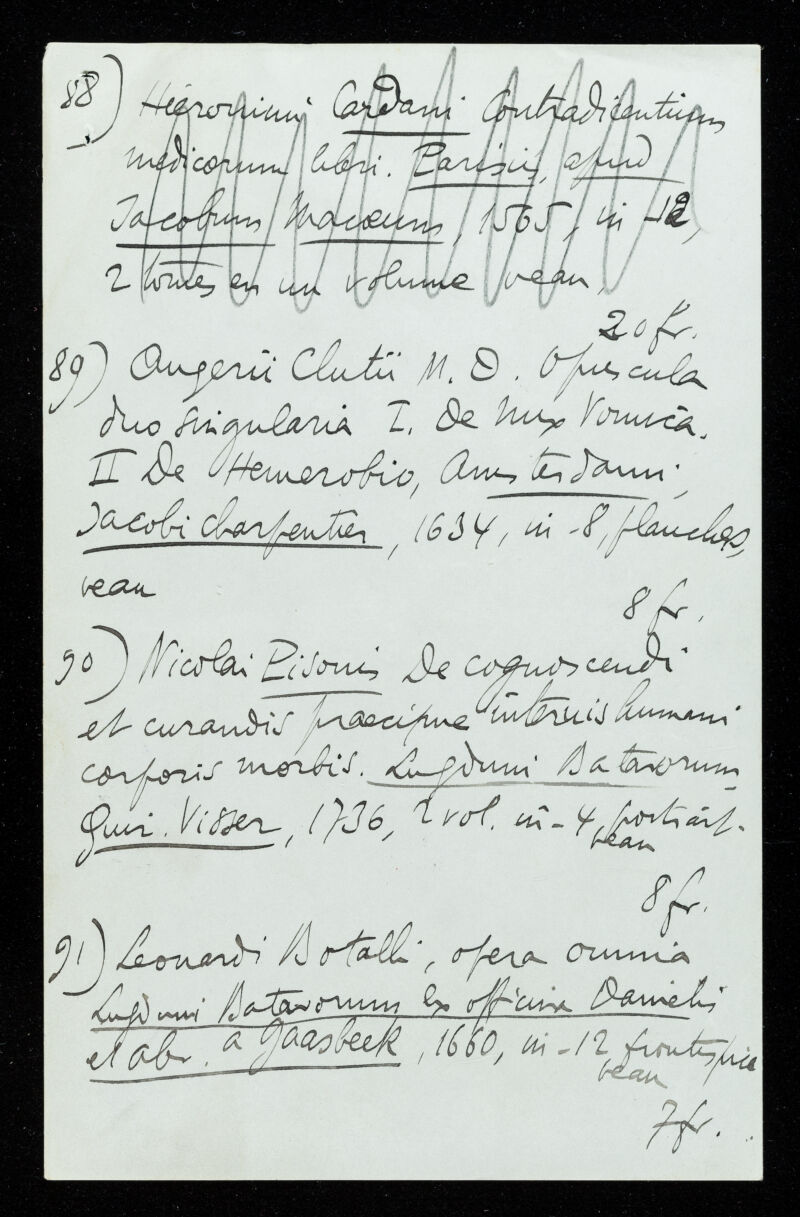 88) Hieronimi Cardani Contradicentium
medicorum libri. Parisiis, apud
Jacobum Macæum, 1565, in-12,
2 tomes en un volume veau,
20 fr.
89) Augerii Clutii M. D. Opuscula
duo singularia I. De Nux Vomica.
II De Hemerobio, Amsterdami,
Jacobi Charpentier, 1634, in-8, planches,
veau
8 fr.
90) Nicolai Pisonis De cognoscendi
et curandis praecipue internis humani
corporis morbis. Lugduni Batavorum
Guir. Visser, 1736, 2 vol. in-4, portrait.
veau
8 fr.
91) Leonardi Botalli, opera omnia
Lugduni Batavorum Ex officina Danielis
et abr. a Gaasbeek, 1660, in-12, frontispice
veau
7 fr.